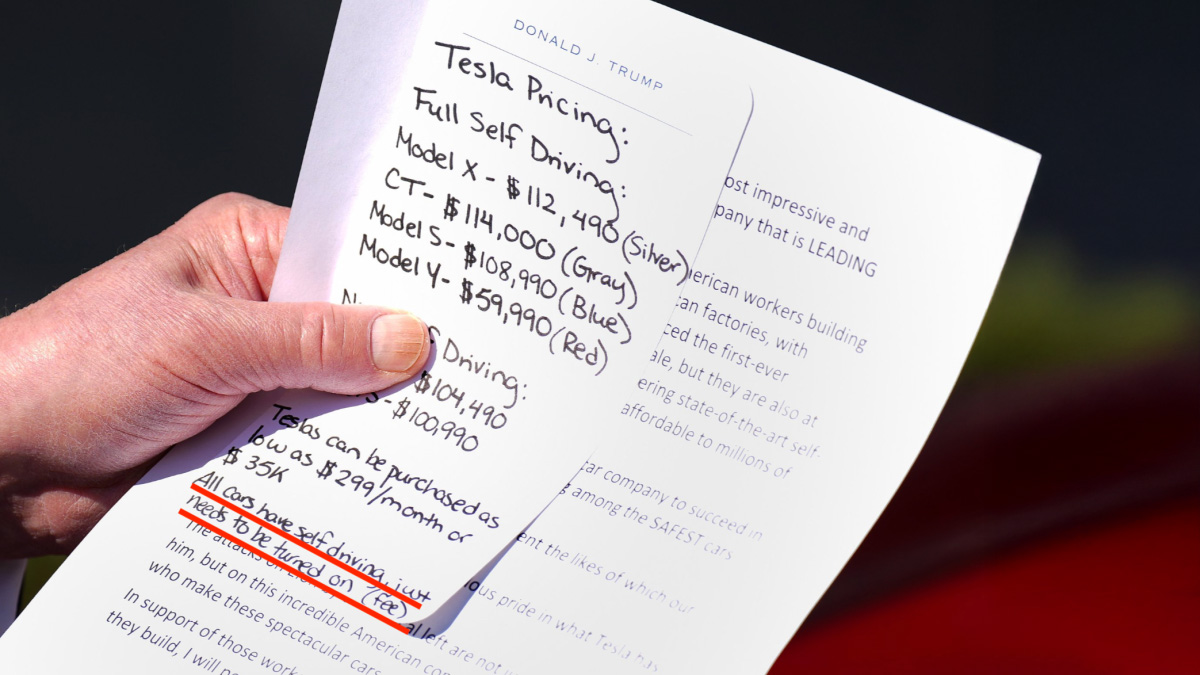 DONALD J. TRUMP
Tesla Pricing:
Full Self Driving:
Model X - $112,490 (Silver)
CT - $114,000 (Gray)
Model S - $108,990 (Blue)
Model Y - $59,990 (Red)
Driving:
$104,490
- $100,990
Teslas can be purchased as
low as $299/month or
$35K
All cars have self driving, just
needs to be turned on (fee)
impressive and
that is LEADING
workers building
factories, with
the first-ever
but they are also at
state-of-the-art self-
affordable to millions of
company to succeed in
among the SAFEST cars
the likes of which our
pride in what Tesla has
The attacks on
him, but on this incredible American
left are not
who make these spectacular cars
In support of those
they build, I will